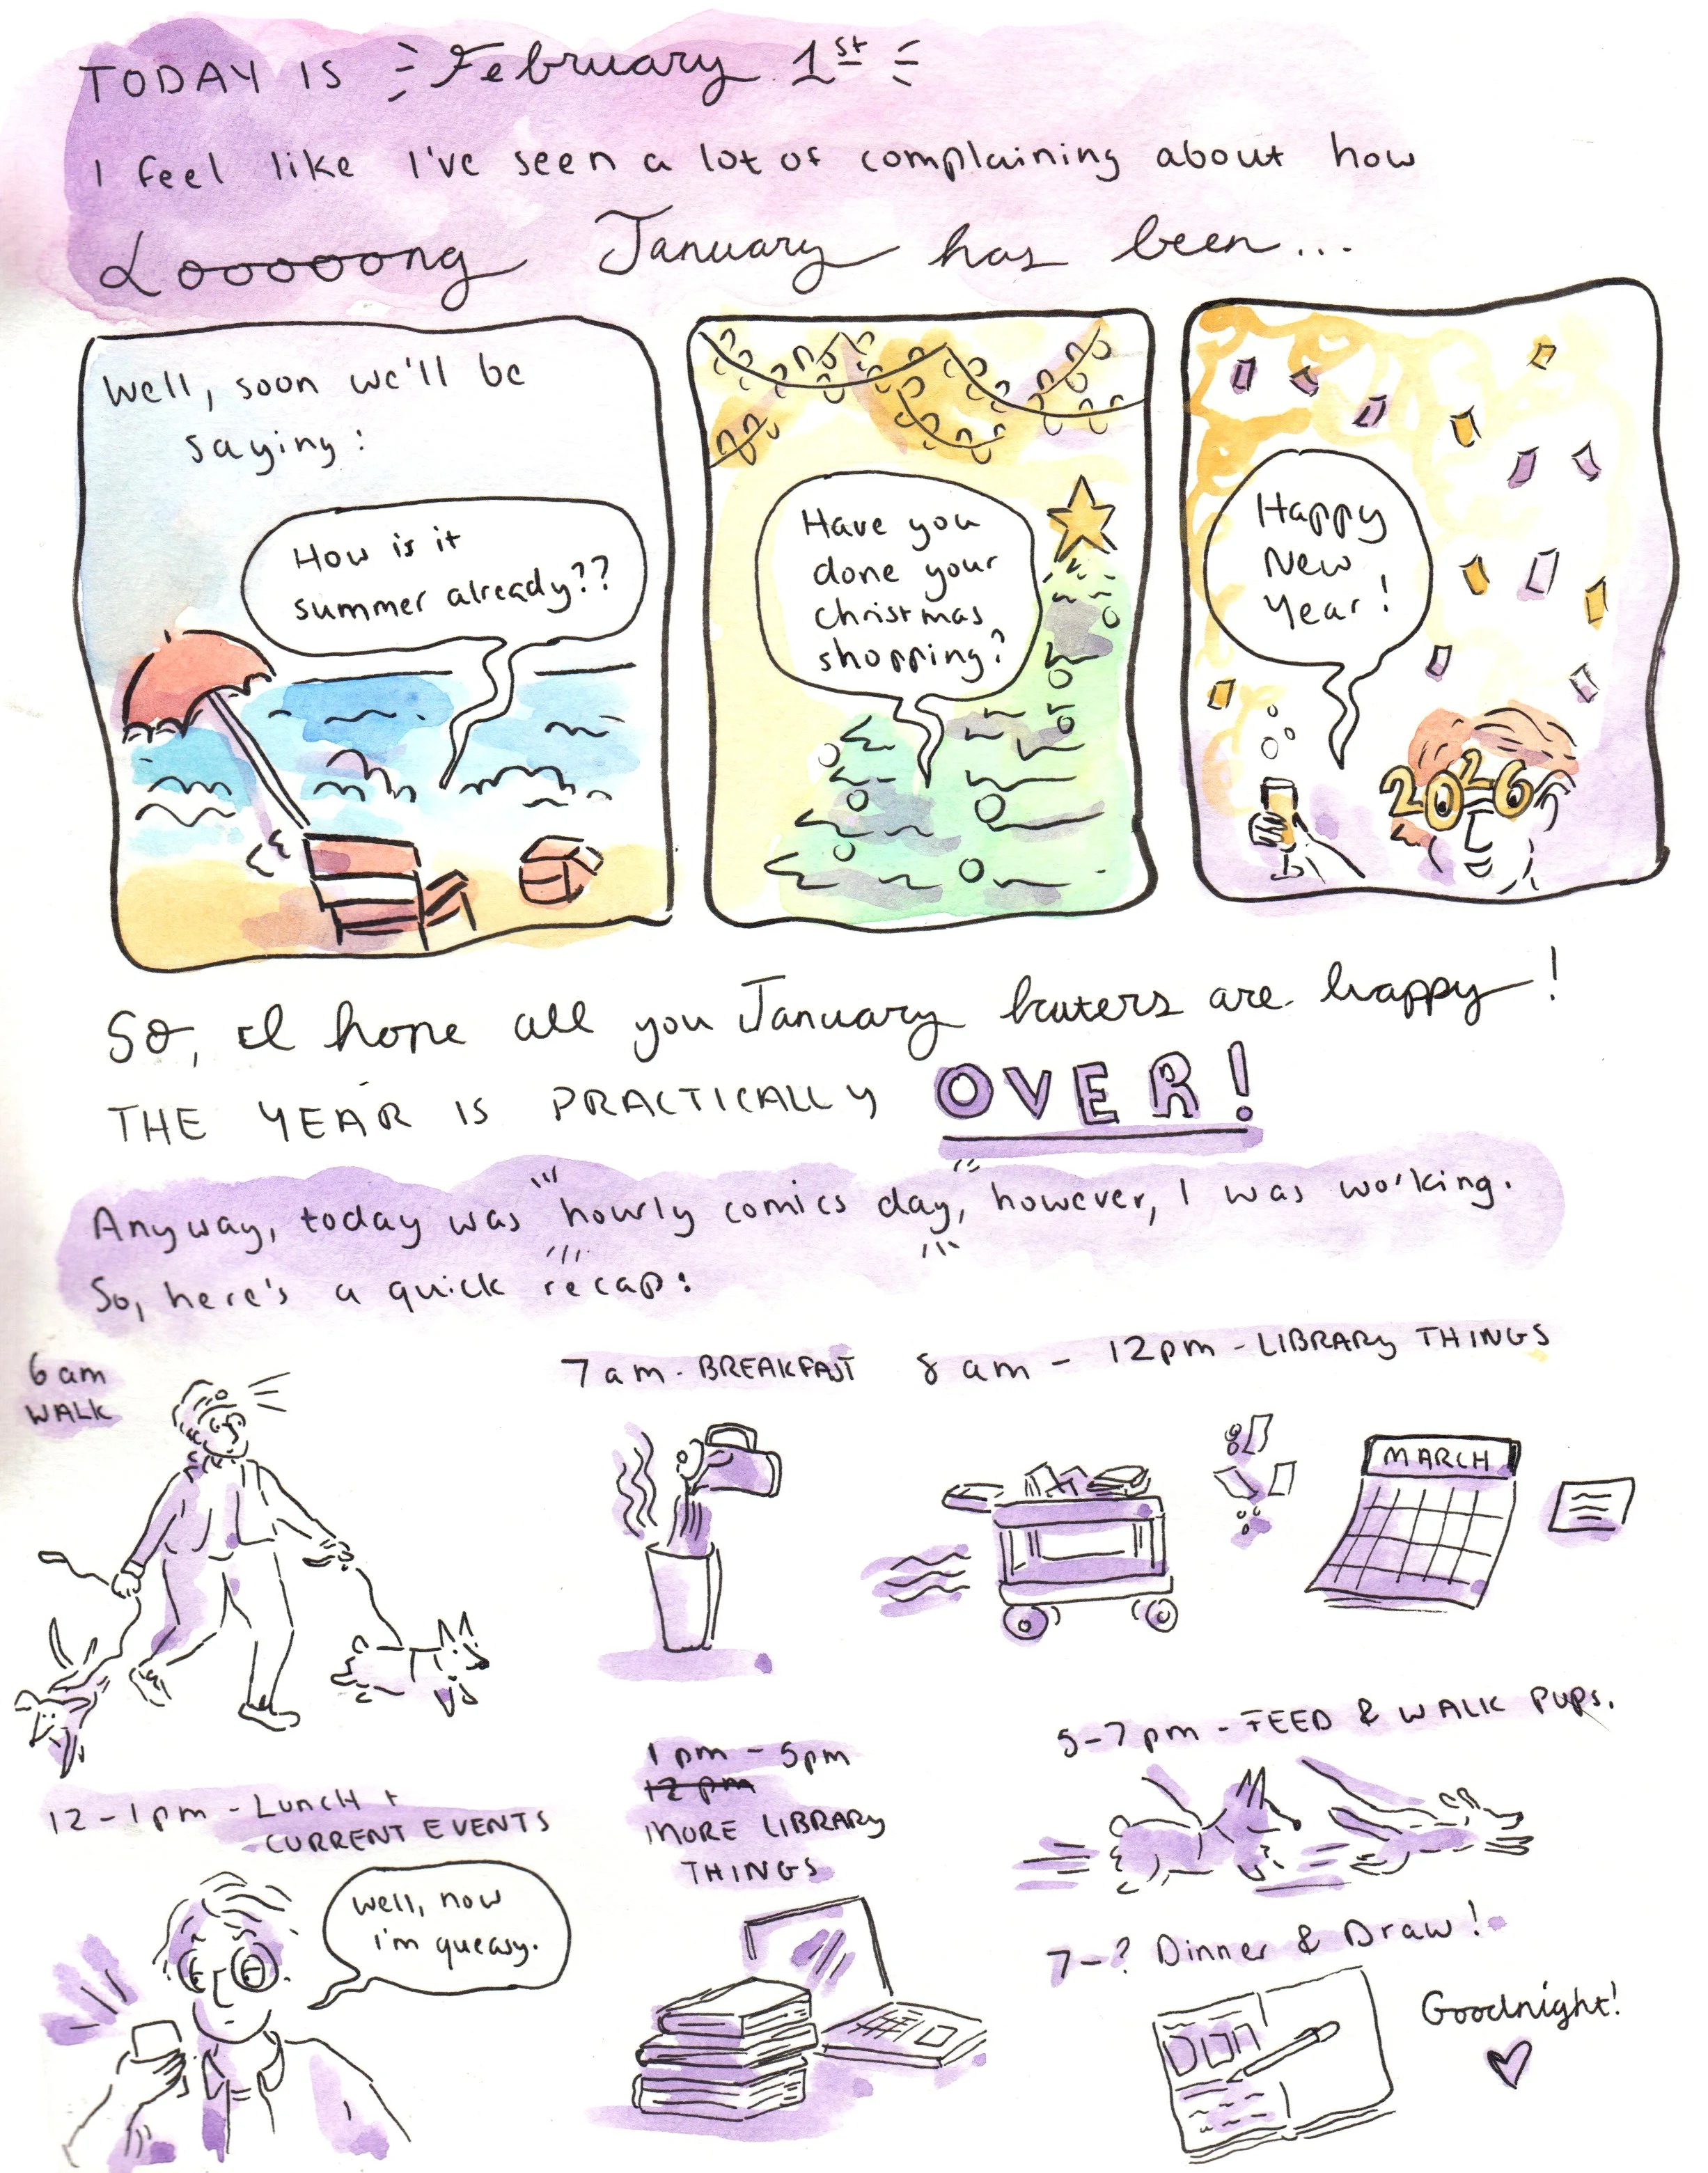 TODAY IS February 1st
I feel like I've seen a lot of complaining about how
Looooong January has been...
Well, soon we'll be
saying:
How is it
summer already??
Have you
done your
christmas
shopping?
Happy
New
Year!
2026
So, I hope all you January haters are happy!
THE YEAR IS PRACTICALLY OVER!
Anyway, today was "hourly comics day," however, I was working.
So, here's a quick recap:
6 am
WALK
7 am - BREAKFAST
8 am - 12pm - LIBRARY THINGS
MARCH
12-1pm - LUNCH +
CURRENT EVENTS
well, now
i'm queasy.
1 pm - 5pm
12 pm
MORE LIBRARY
THINGS
5-7pm - FEED & WALK PUPS.
7-? Dinner & Draw!
Goodnight!